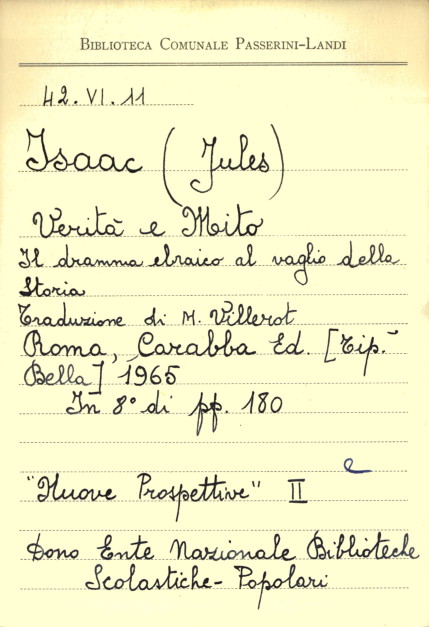 Biblioteca Comunale Passerini-Landi
42. VI. 11
Isaac (Jules)
Verità e Mito
Il dramma ebraico al vaglio della
Storia
Traduzione di M. Villerot
Roma, Carabba Ed. [Tip.
Bella] 1965
In 8° di pp. 180
e
"Nuove Prospettive" II
Dono Ente Nazionale Biblioteche
Scolastiche-Popolari